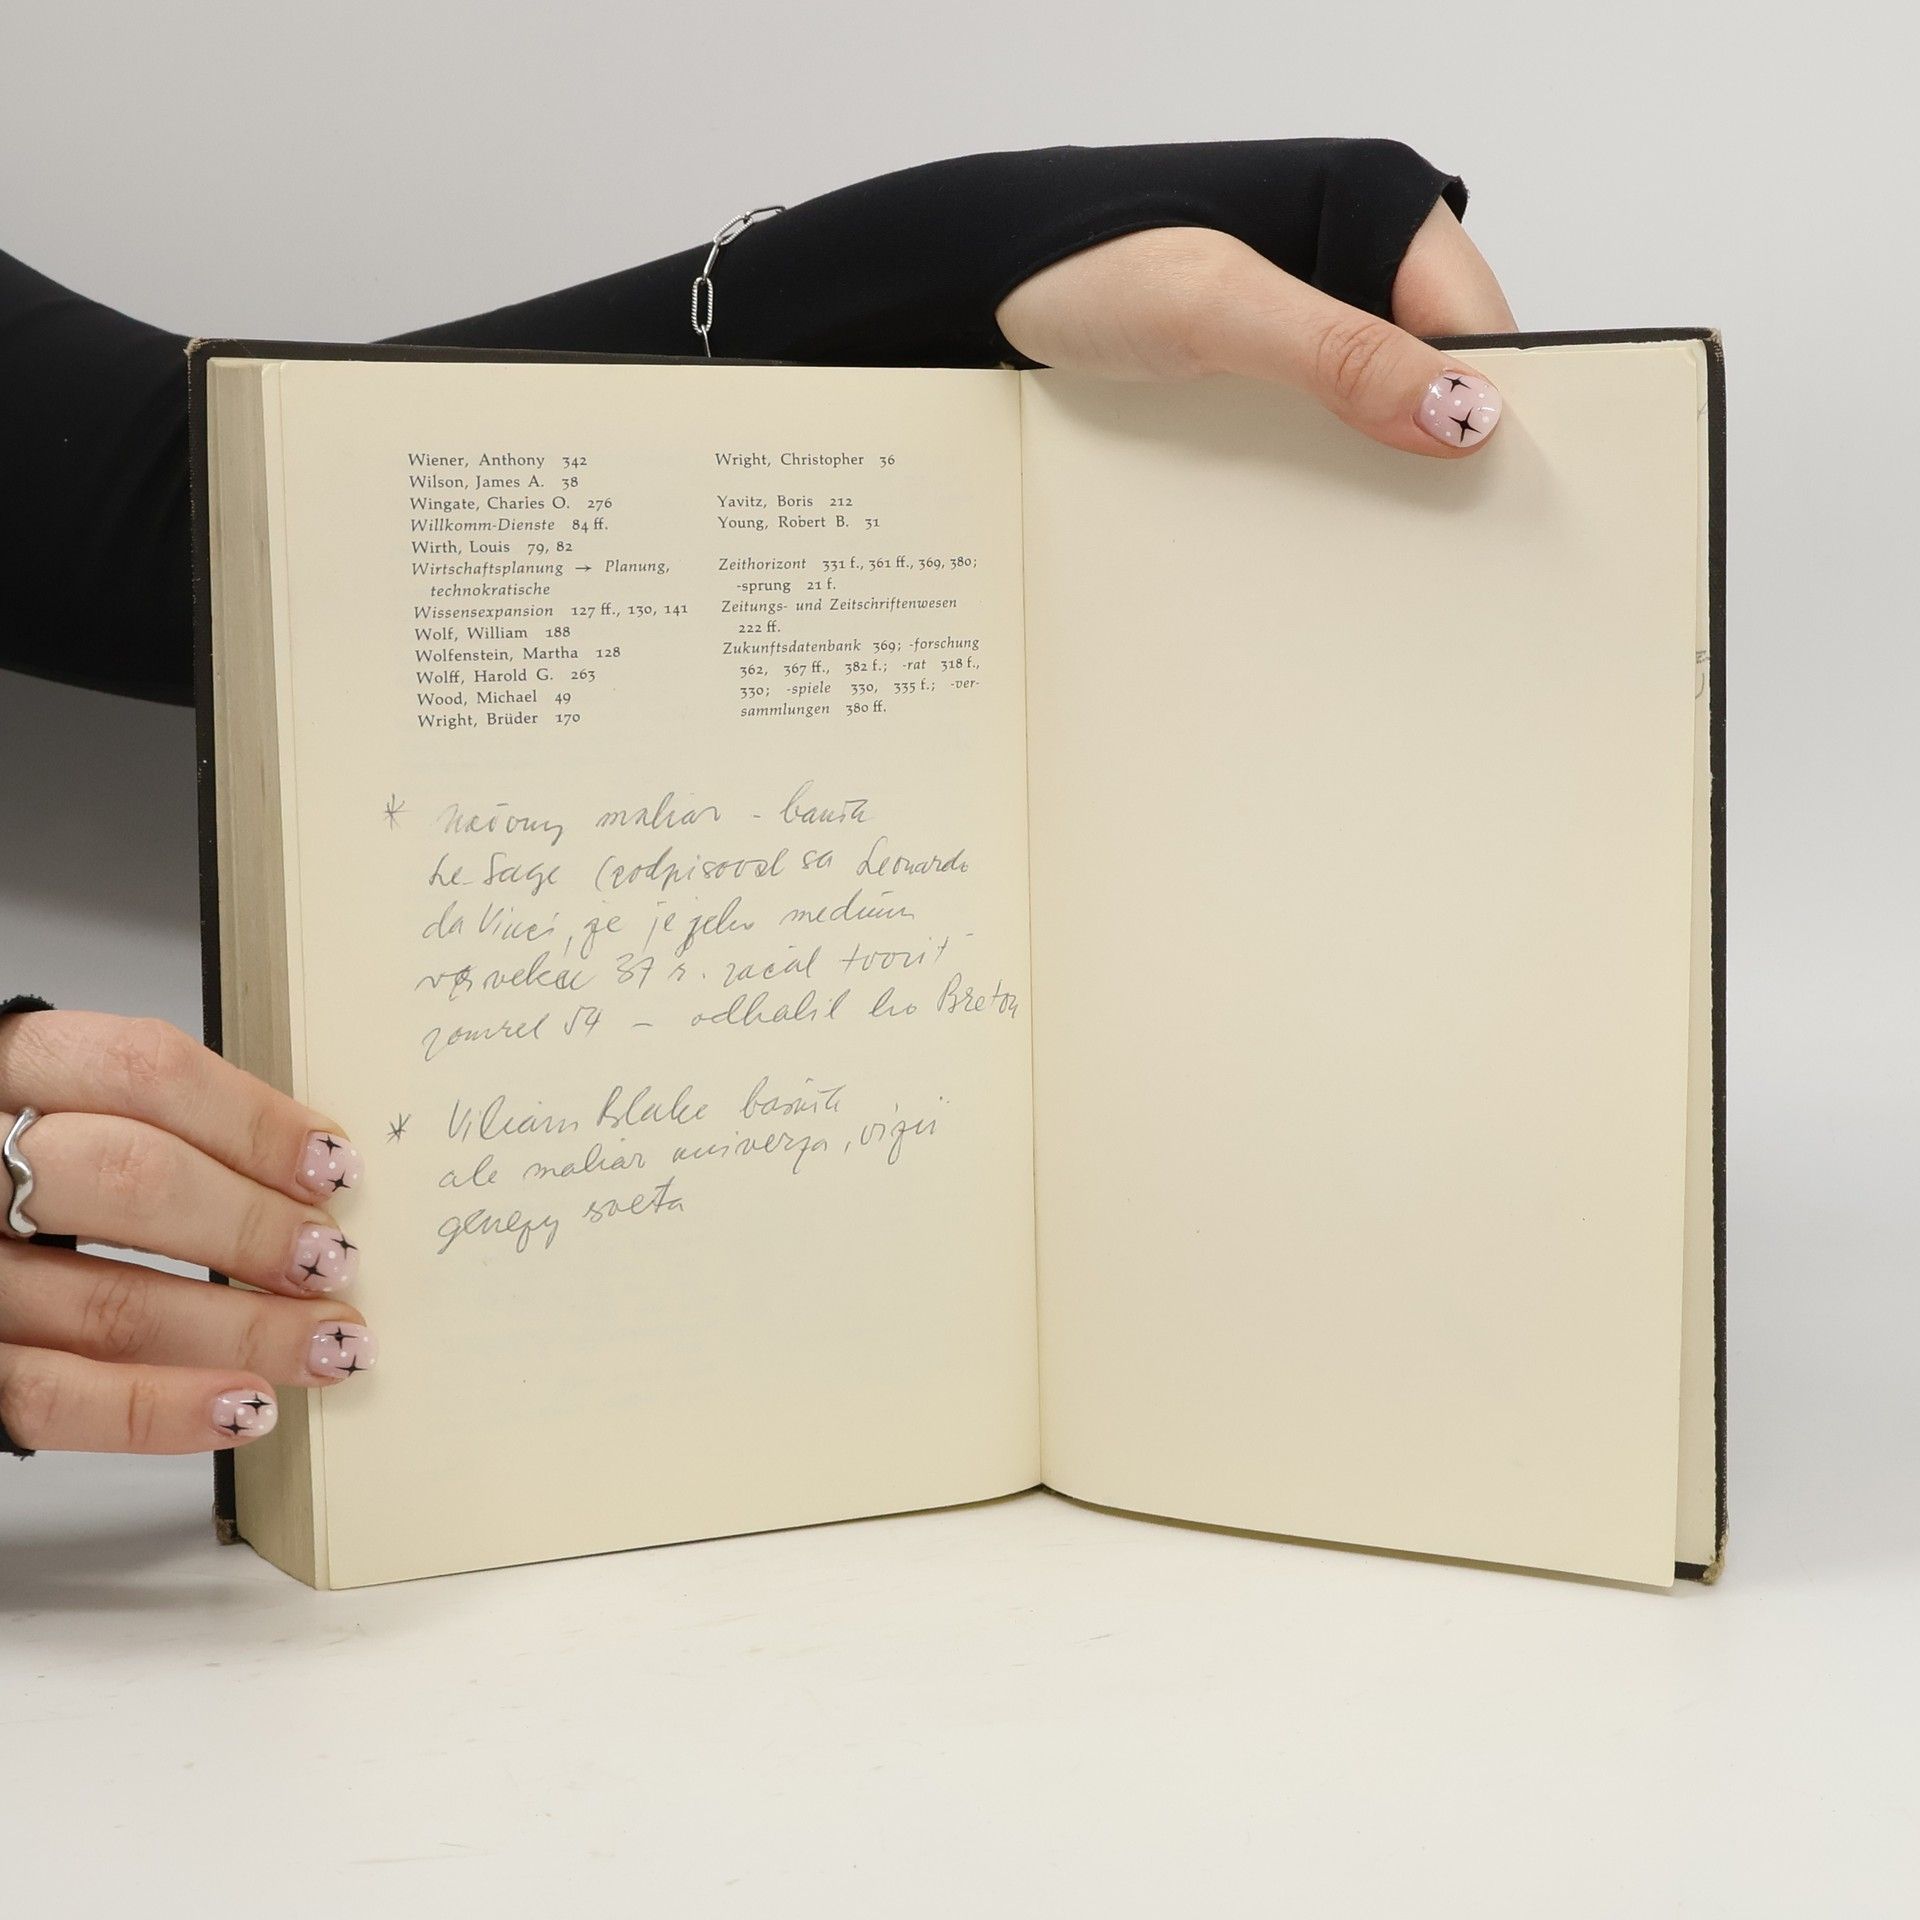 Wiener, Anthony 342
Wilson, James A. 38
Wingate, Charles O. 276
Willkomm-Dienste 84 ff.
Wirth, Louis 79, 82
Wirtschaftsplanung → Planung,
technokratische
Wissensexpansion 127 ff., 130, 141
Wolf, William 188
Wolfenstein, Martha 128
Wolff, Harold G. 263
Wood, Michael 49
Wright, Brüder 170
Wright, Christopher 36
Yavitz, Boris 212
Young, Robert B. 31
Zeithorizont 331 f., 361 ff., 369, 380;
-sprung 21 f.
Zeitungs- und Zeitschriftenwesen
222 ff.
Zukunftsdatenbank 369; -forschung
362, 367 ff., 382 f.; -rat 318 f.,
330; -spiele 330, 335 f.; -ver-
sammlungen 380 ff.
* maliar -
Le Sage (podpisoval sa Leonardo
da Vinci, že je jeho medium
37 r. začal tvoriť
zomrel 54 – odhalil ho Breton
* Viliam Blake
ale maliar univerza, vizii
genezy sveta